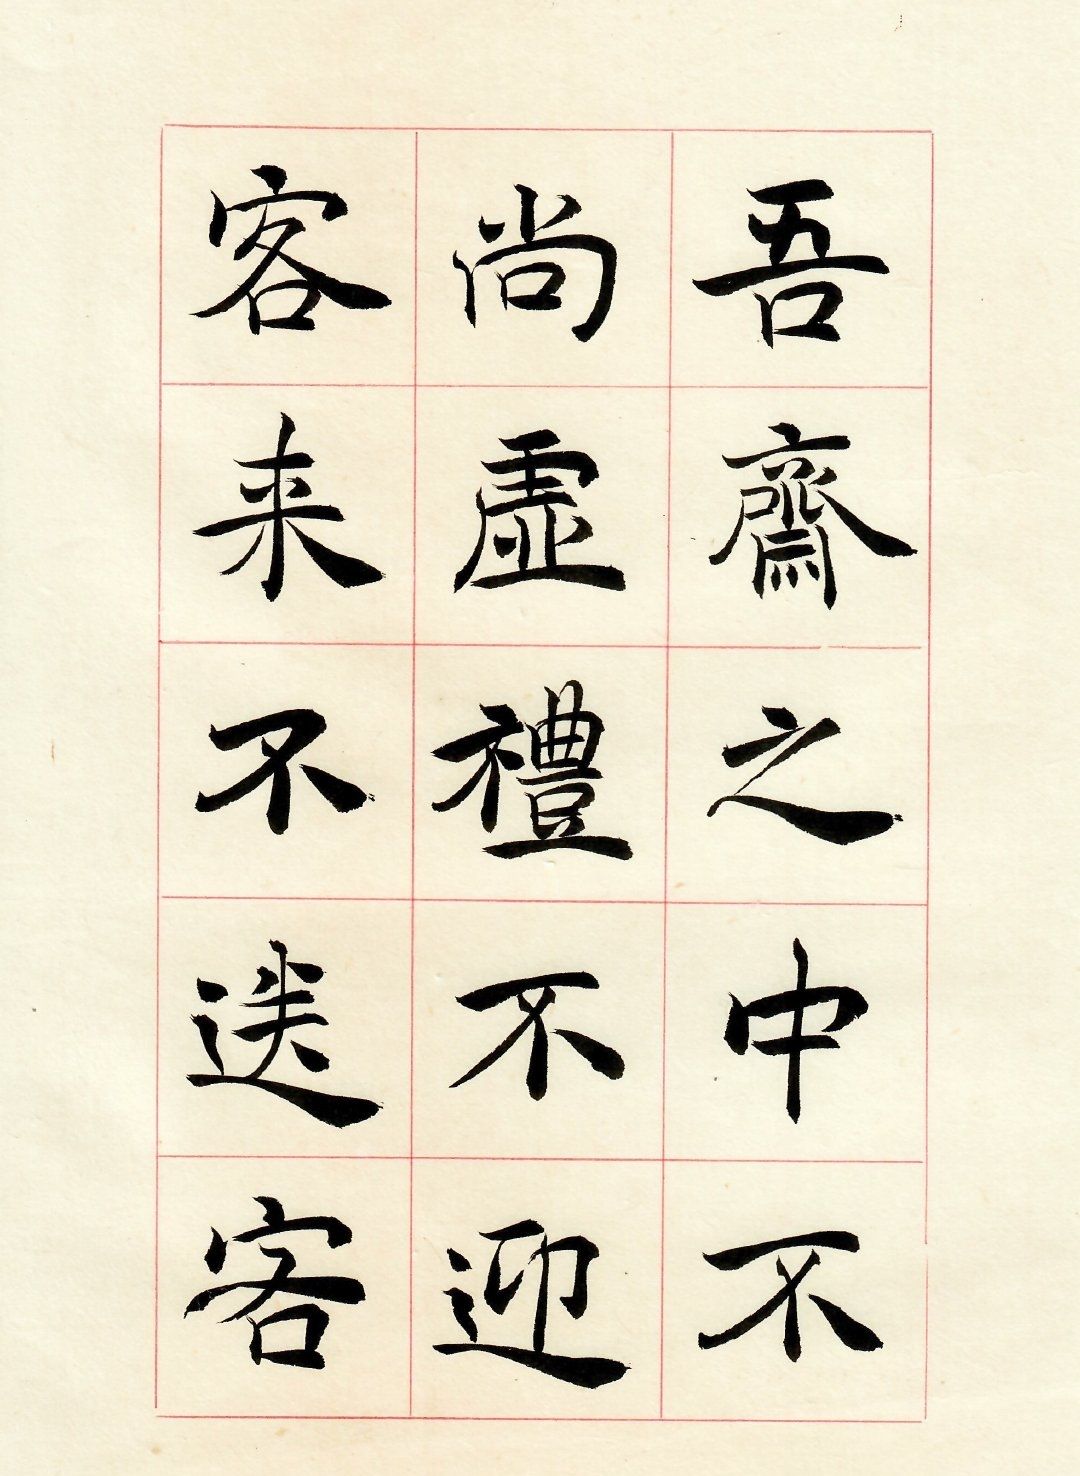 吾齋之中不
尚虛禮不迎
客来不送客